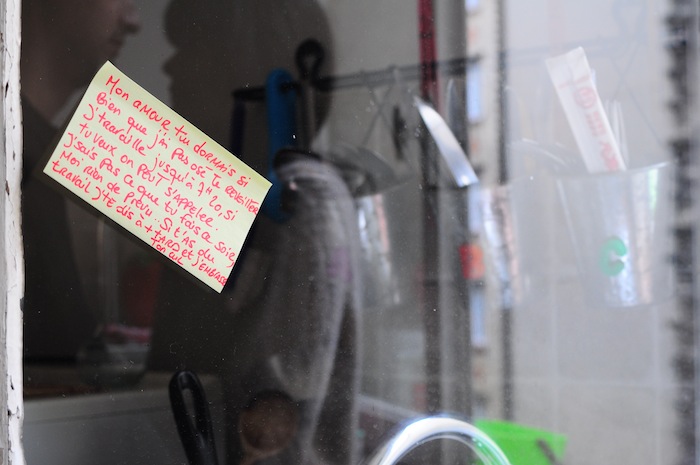 Mon amour tu dormais si
bien que j'ai pas osé te réveiller
j'travaille jusqu'à J'1 20, si
tu veux on peut s'appeler.
j'sais pas ce que tu fais ce soir,
Moi rien de prévu.. Si t'as du
travail j'te dis à + TARD et j'embrasse
ton cul